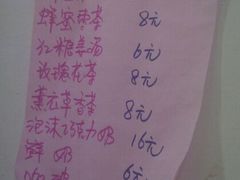 蜂蜜枣茶 8元
红糖姜汤 6元
玫瑰花茶 8元
薰衣草香茶 8元
泡沫巧克力奶 16元
鲜奶
咖啡 6元